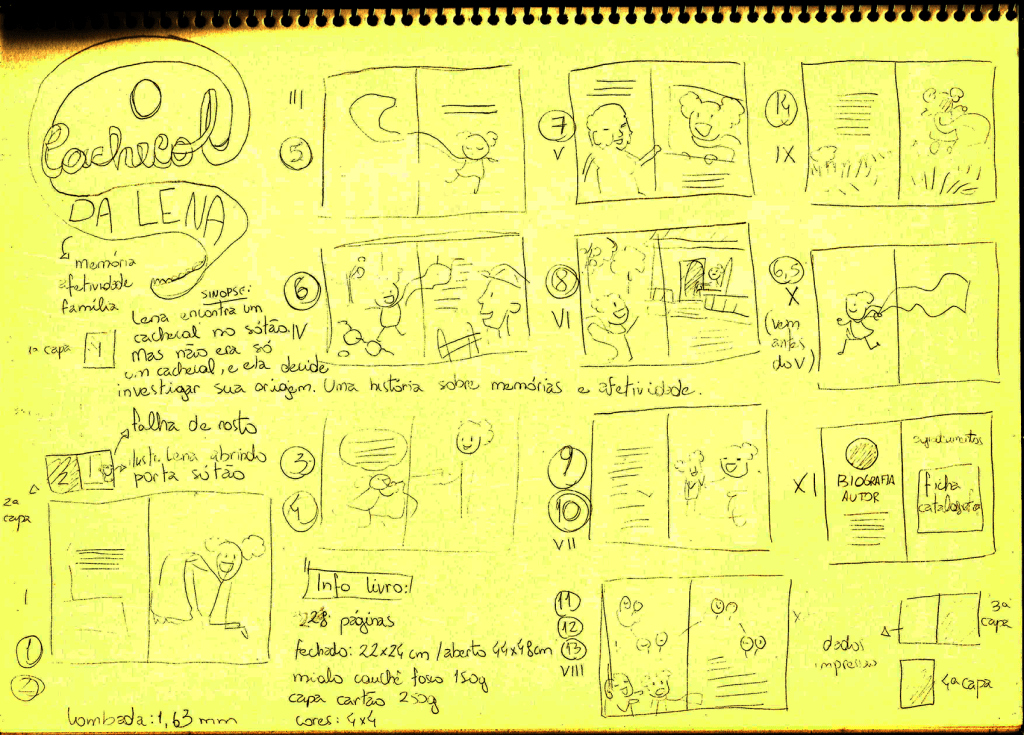 O
Cachecol
DA LENA
memória
afetividade
família
SINOPSE:
Lena encontra um
cachecol no sótão.
Mas não era só
um cachecol, e ela decide
investigar sua origem. Uma história sobre memórias e afetividade.
1ª capa
folha de rosto
ilustr. Lena abrindo
porta sótão
2ª
capa
I
1
2
Lombada: 1,63 mm
III
5
6
IV
3
4
Info livro:
28 páginas
fechado: 22x24 cm / aberto 44x48cm
miolo couchê fosco 150g
capa cartão 250g
cores: 4x4
7
V
8
VI
9
10
VII
11
12
13
VIII
14
IX
6,5
X
(vem
antes
do V)
XI
BIOGRAFIA
AUTOR
agradecimentos
ficha
dados
impressão
3ª
capa
4ª capa